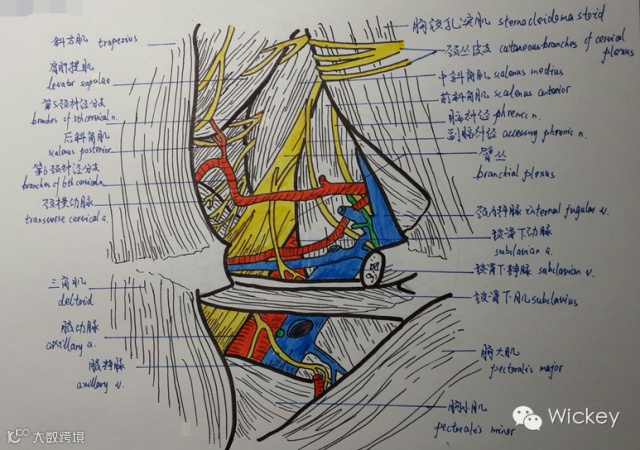 斜方肌 trapezius
肩胛提肌
levator scapulae
第5颈神经分支
branches of 5th cervical n.
后斜角肌
scalenus posterior
第6颈神经分支
branches of 6th cervical n.
颈横动脉
transverse cervical a.
三角肌
deltoid
腋动脉
axillary a.
腋静脉
axillary v.
胸锁乳突肌 sternocleidomastoid
颈丛皮支 cutaneous branches of cervical
plexus
中斜角肌 scalenus medius
前斜角肌 scalenus anterior
膈神经 phrenic n.
副膈神经 accessing phrenic n.
臂丛
branchial plexus
颈内静脉 internal jugular v.
锁骨下动脉
subclavian a.
锁骨下静脉 subclavian v.
锁骨下肌 subclavius
胸大肌
pectoralis major
胸小肌
pectoralis minor
Wickey
大数跨境